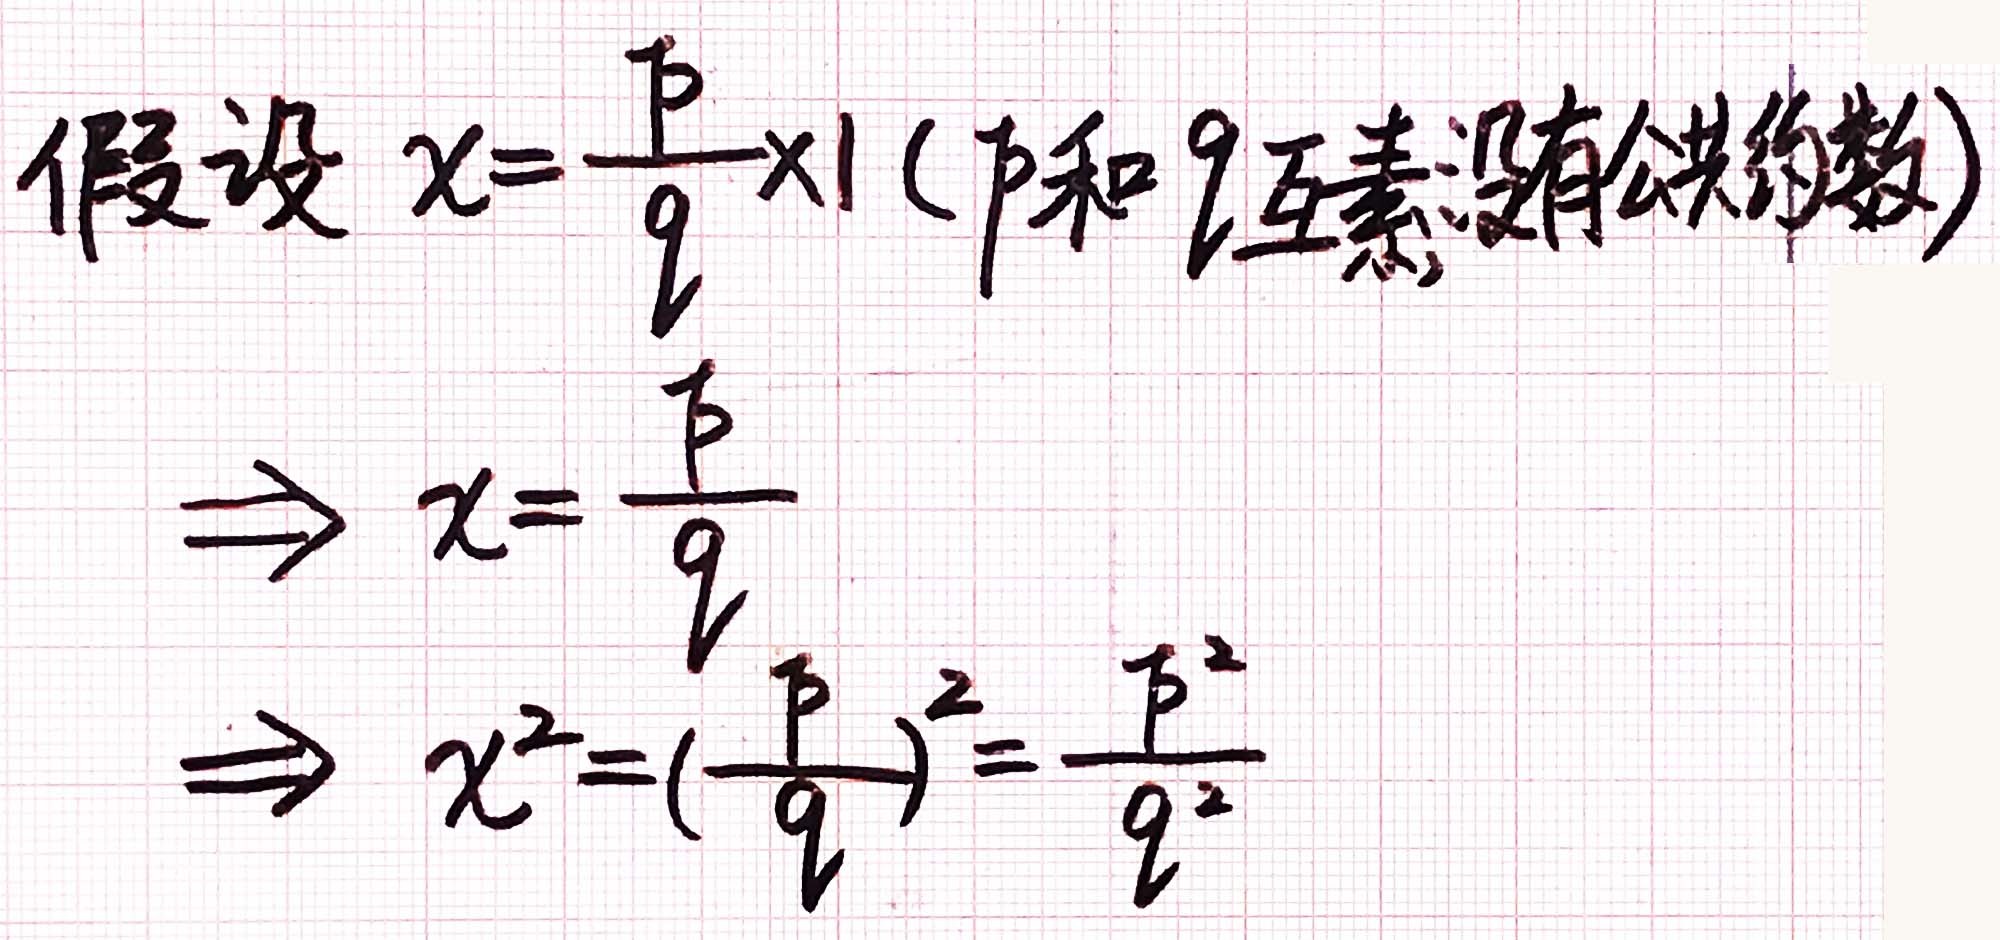 假设 x = p/q × 1 (p和q互素,没有公共约数)
⇒ x = p/q
⇒ x² = (p/q)² = p²/q²